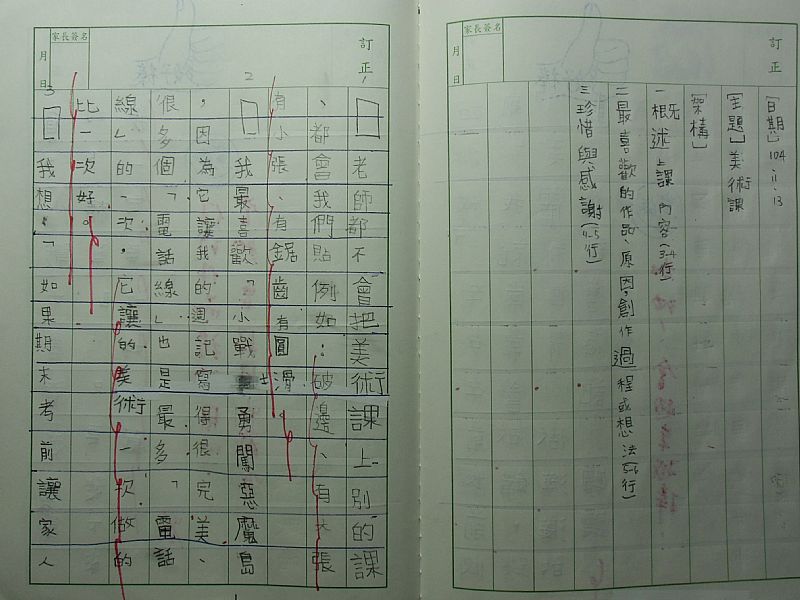 訂正
家長簽名
月 日
[日期] 104.11.13
[主題] 美術課
[架構]
一概述上課內容(3-4行)
二最喜歡的作品、原因,創作過程或想法(5-6行)
三珍惜與感謝(4-5行)
訂正
家長簽名
月 日
1
老師都不會把美術課上別的課
、都會我們貼例如:破邊、有大張
有小張、有鋸齒有圓滑
2
我最喜歡「小戰士勇闖惡魔島
,因為它讓我的週記寫得很完美、
很多個「電話線」也是最多「電話
線」的一次,它讓的美術一次做的
比一次好。
3
我想:「如果期末考前讓家人